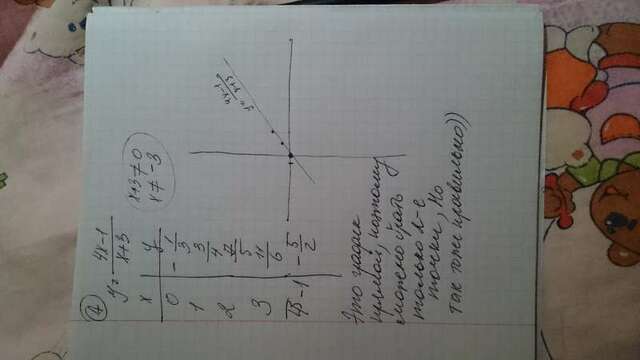 4
y = 4x-1 / x+3
x+3≠0
x≠-3
x | y
0 | -1/3
1 | 3/4
2 | 7/5
3 | 11/6
-1 | -5/2
y = 4x-1 / x+3
Это график
прямой, поэтому
можно брать
только 2-е
точки, но
так тоже правильно))